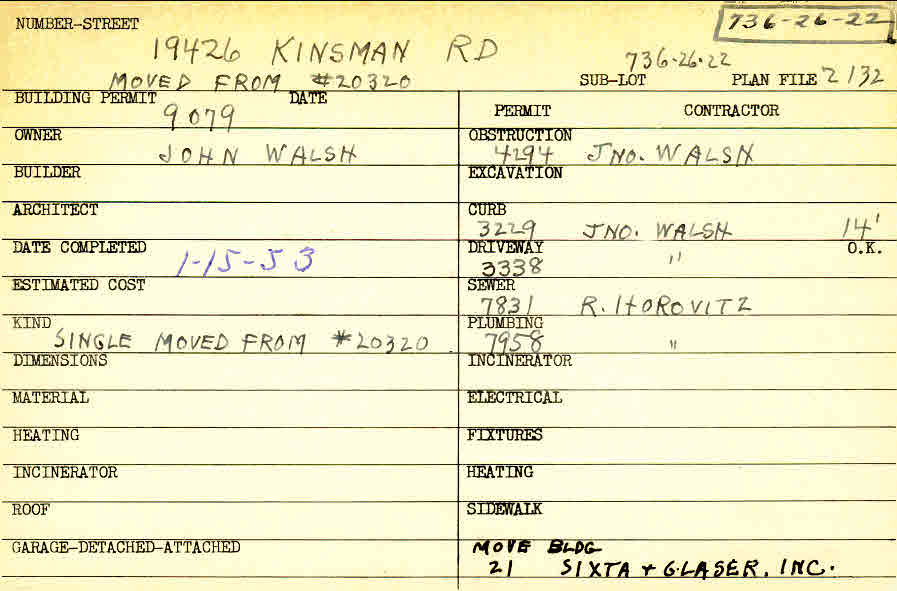 NUMBER-STREET
736-26-22
19426 KINSMAN RD
736-26-22
MOVED FROM #20320
SUB-LOT PLAN FILE 2132
BUILDING PERMIT DATE
9079
PERMIT CONTRACTOR
OWNER
JOHN WALSH
OBSTRUCTION
4294 JNO. WALSH
BUILDER
EXCAVATION
ARCHITECT
CURB
3229 JNO. WALSH 14'
DATE COMPLETED
1-15-53
DRIVEWAY O.K.
3338 "
ESTIMATED COST
SEWER
7831 R. HOROVITZ
KIND
SINGLE MOVED FROM #20320
PLUMBING
7958 "
DIMENSIONS
INCINERATOR
MATERIAL
ELECTRICAL
HEATING
FIXTURES
INCINERATOR
HEATING
ROOF
SIDEWALK
GARAGE-DETACHED-ATTACHED
MOVE BLDG
21 SIXTA + GLASER, INC.